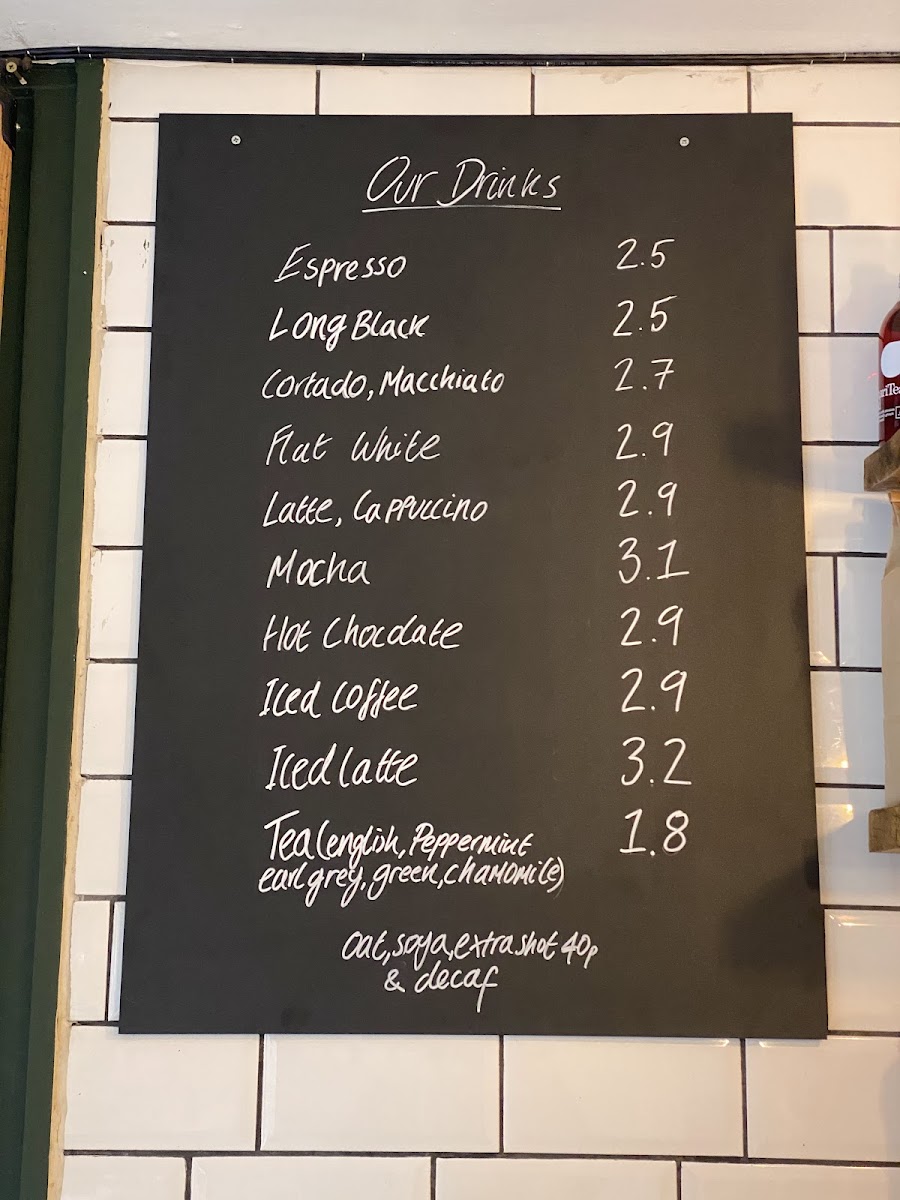 Our Drinks
Espresso 2.5
Long Black 2.5
Cortado, Macchiato 2.7
Flat White 2.9
Latte, Cappuccino 2.9
Mocha 3.1
Hot Chocolate 2.9
Iced Coffee 2.9
Iced Latte 3.2
Tea (english, Peppermint 1.8
earl grey, green, chamomile)
Oat, soya, extra shot 40p
& decaf